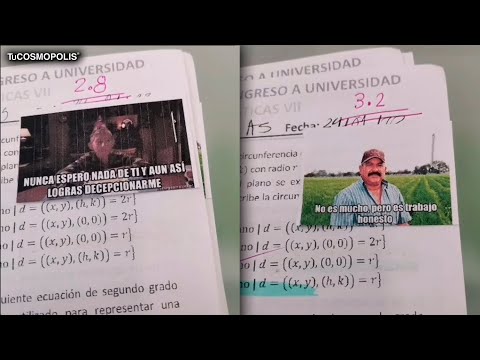 TuCOSMOPOLIS
GRESO A UNIVERSIDAD
2.8
ICAS VII
NUNCA ESPERO NADA DE TI Y AUN ASÍ
LOGRAS DECEPCIONARME
no | d = ((x, y), (h, k)) = 2r}
no | d = ((x, y), (0, 0)) = 2r}
no | d = ((x, y), (0, 0)) = r}
no | d = ((x, y), (h, k)) = r}
uiente ecuación de segundo grado
utilizado para representar una
NGRESO A UNIVERSIDAD
3.2
ICAS VII
AS Fecha:
circunferencia
k) con radio r
l plano se ex
ribe la circun
No es mucho, pero es trabajo
honesto
no | d = ((x, y), (h, k)) = 2r}
no | d = ((x, y), (0, 0)) = 2r}
no | d = ((x, y), (0, 0)) = r}
no | d = ((x, y), (h, k)) = r}